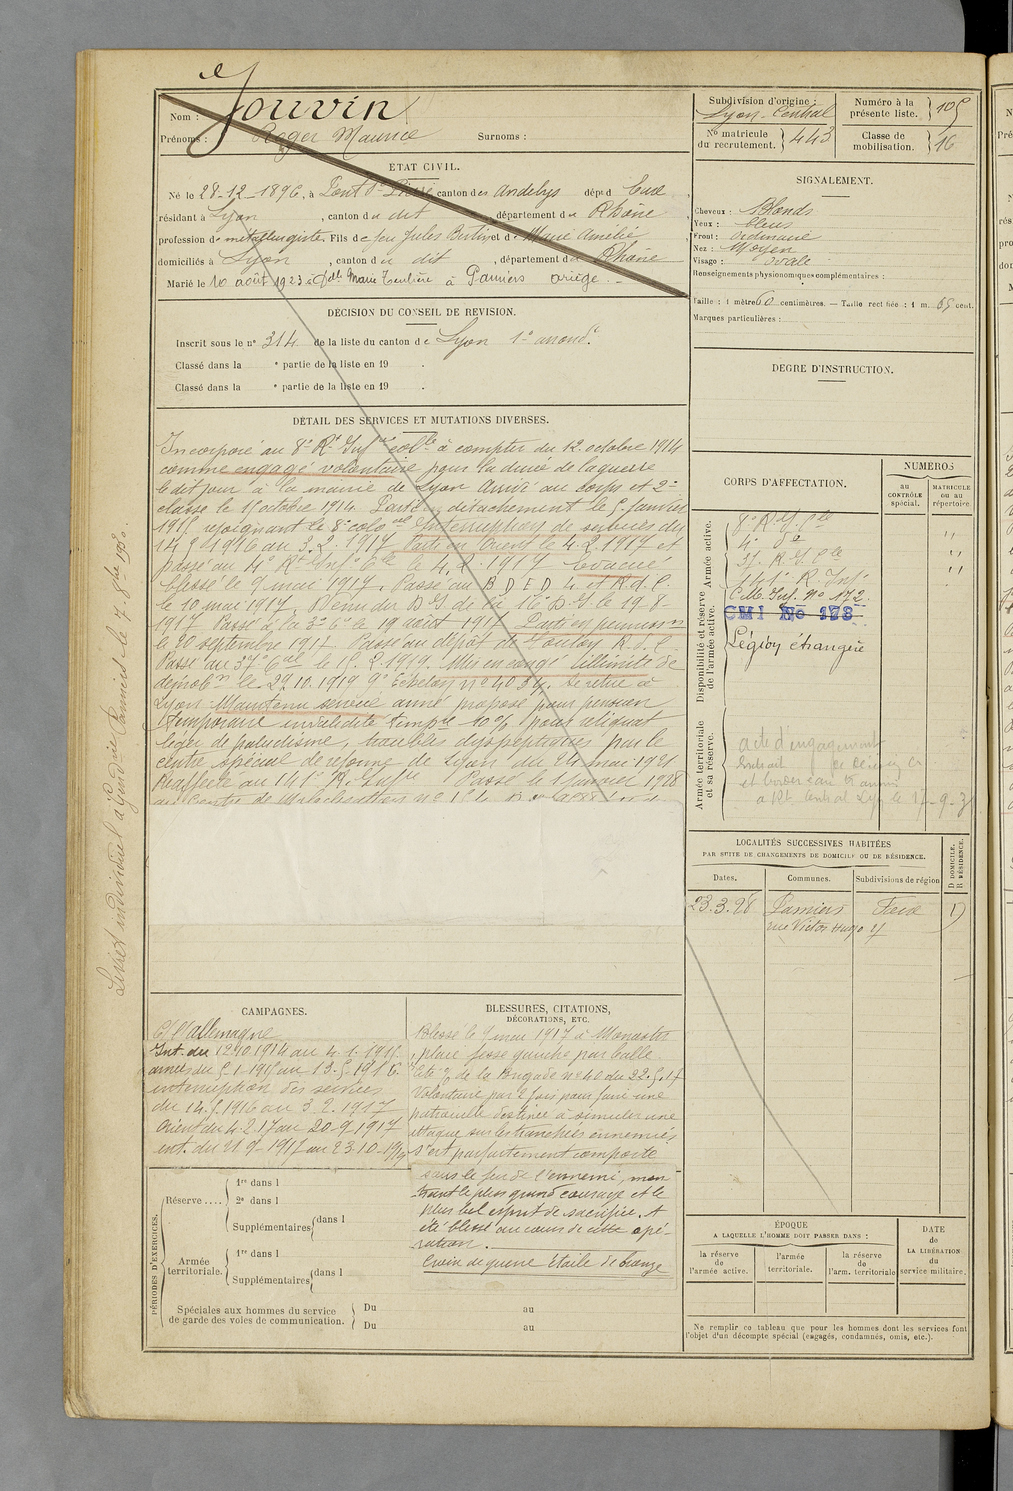 Nom : Jouvin
Prénoms : Roger Maurice Surnoms :
ÉTAT CIVIL.
Né le 28-12-1896, à Pont St Pierre, canton des Andelys, dépt d Eure
résidant à Lyon, canton du dit, département du Rhône
profession de métallurgiste, Fils de feu Jules Bertin et de Marie Amélie
domiciliés à Lyon, canton du dit, département du Rhône
Marié le 10 août 1923 à Delle Marie à Pamiers Ariège.
DÉCISION DU CONSEIL DE REVISION.
Inscrit sous le n° 314 de la liste du canton de Lyon 1er arrondt.
Classé dans la e partie de la liste en 19 .
Classé dans la e partie de la liste en 19 .
DÉTAIL DES SERVICES ET MUTATIONS DIVERSES.
Incorporé au 8e Rt Infie colle à compter du 12 octobre 1914
comme engagé volontaire pour la durée de la guerre
le dit jour à la mairie de Lyon Arrivé au corps et 2e
classe le 15 octobre 1914. Parti en détachement le 5 janvier
1915 rejoignant le 8e colonial Interruption de services du
14-5-1916 au 3.2.1917 Parti en Orient le 4.2.1917 et
passé au 4e Rt Infie Cle le 4.2.1917 Evacué
blessé le 9 mai 1917. Passé au B D E D 4 et R.d.C.
le 10 mai 1917. Venu du D.G de la 16e D.G. le 19-8-
1917 Passé à la 3e Cie le 19 août 1917
le 20 septembre 1917 Passé au dépôt de Toulon R.d.C.
Passé au 37e Cal le 15.2.1919. Mis en congé illimité de
démobon le 29.10.1919 9e Echelon n° 4034. Se retire à
Lyon. Maintenu service armé proposé pour pension
temporaire invalidité tempre 10% pour reliquat
léger de paludisme, troubles dyspeptiques par le
centre spécial de réforme de Lyon du 24 mai 1921
Réaffecté au 141e R. Infie Passé le 1 janvier 1928
au Centre de Mobilisation n°
Livret individuel à Gendie Pamiers le 7-8bre 1930
CAMPAGNES.
C/ l'Allemagne
Int. du 12.10.1914 au 4-1-1915.
armées du 5-1-1915 au 13-5-1916.
interruption des services
du 14.5.1916 au 3.2.1917
Orient du 4.2.17 au 20-9-1917
int. du 21-9-1917 au 23-10-1919
BLESSURES, CITATIONS,
DÉCORATIONS, ETC.
Blessé le 9 mai 1917 à Monastir
, plaie fesse gauche par balle.
Cité à/o de la Brigade n° 40 du 22.5.17
Volontaire par 2 fois pour faire une
patrouille destinée à simuler une
attaque sur les tranchées ennemies
s'est parfaitement comporté
sous le feu de l'ennemi, mon
trant le plus grand courage et le
plus bel esprit de sacrifice. A
été blessé au cours de cette opé-
ration.
Croix de guerre étoile de bronze
PÉRIODES D'EXERCICES.
Réserve .... 1re dans l
2e dans l
Supplémentaires dans l
Armée territoriale. 1re dans l
Supplémentaires dans l
Spéciales aux hommes du service
de garde des voies de communication.
Du au
Du au
Subdivision d'origine :
Lyon-Central
N° matricule
du recrutement. 443
Numéro à la
présente liste. 105
Classe de
mobilisation. 16
SIGNALEMENT.
Cheveux : Blonds
Yeux : bleus
Front : Ordinaire
Nez : Moyen
Visage : Ovale
Renseignements physionomiques complémentaires :
Taille : 1 mètre 60 centimètres. — Taille rectifiée : 1 m. 65 cent.
Marques particulières :
DEGRÉ D'INSTRUCTION.
CORPS D'AFFECTATION.
NUMÉROS
AU
CONTRÔLE
spécial.
MATRICULE
OU AU
répertoire.
Armée active.
8e R If Cle
4e do "
37. R. If Cle "
Disponibilité et réserve
de l'armée active.
141e R. Infie
C.M. Inf. N° 172.
CMI No 178
Légion étrangère
Armée territoriale
et sa réserve.
acte d'engagement
extrait
et bordereau
à Rt central Lyon le 17-9-3
LOCALITÉS SUCCESSIVES HABITÉES
PAR SUITE DE CHANGEMENTS DE DOMICILE OU DE RÉSIDENCE.
Dates.
Communes.
Subdivisions de région
D DOMICILE.
R RÉSIDENCE.
23.3.28 Pamiers Foix D
rue Victor Hugo 27
ÉPOQUE
A LAQUELLE L'HOMME DOIT PASSER DANS :
la réserve
de
l'armée active.
l'armée
territoriale.
la réserve
de
l'arm. territoriale
DATE
de
LA LIBÉRATION
du
service militaire.
Ne remplir ce tableau que pour les hommes dont les services font
l'objet d'un décompte spécial (engagés, condamnés, omis, etc.).